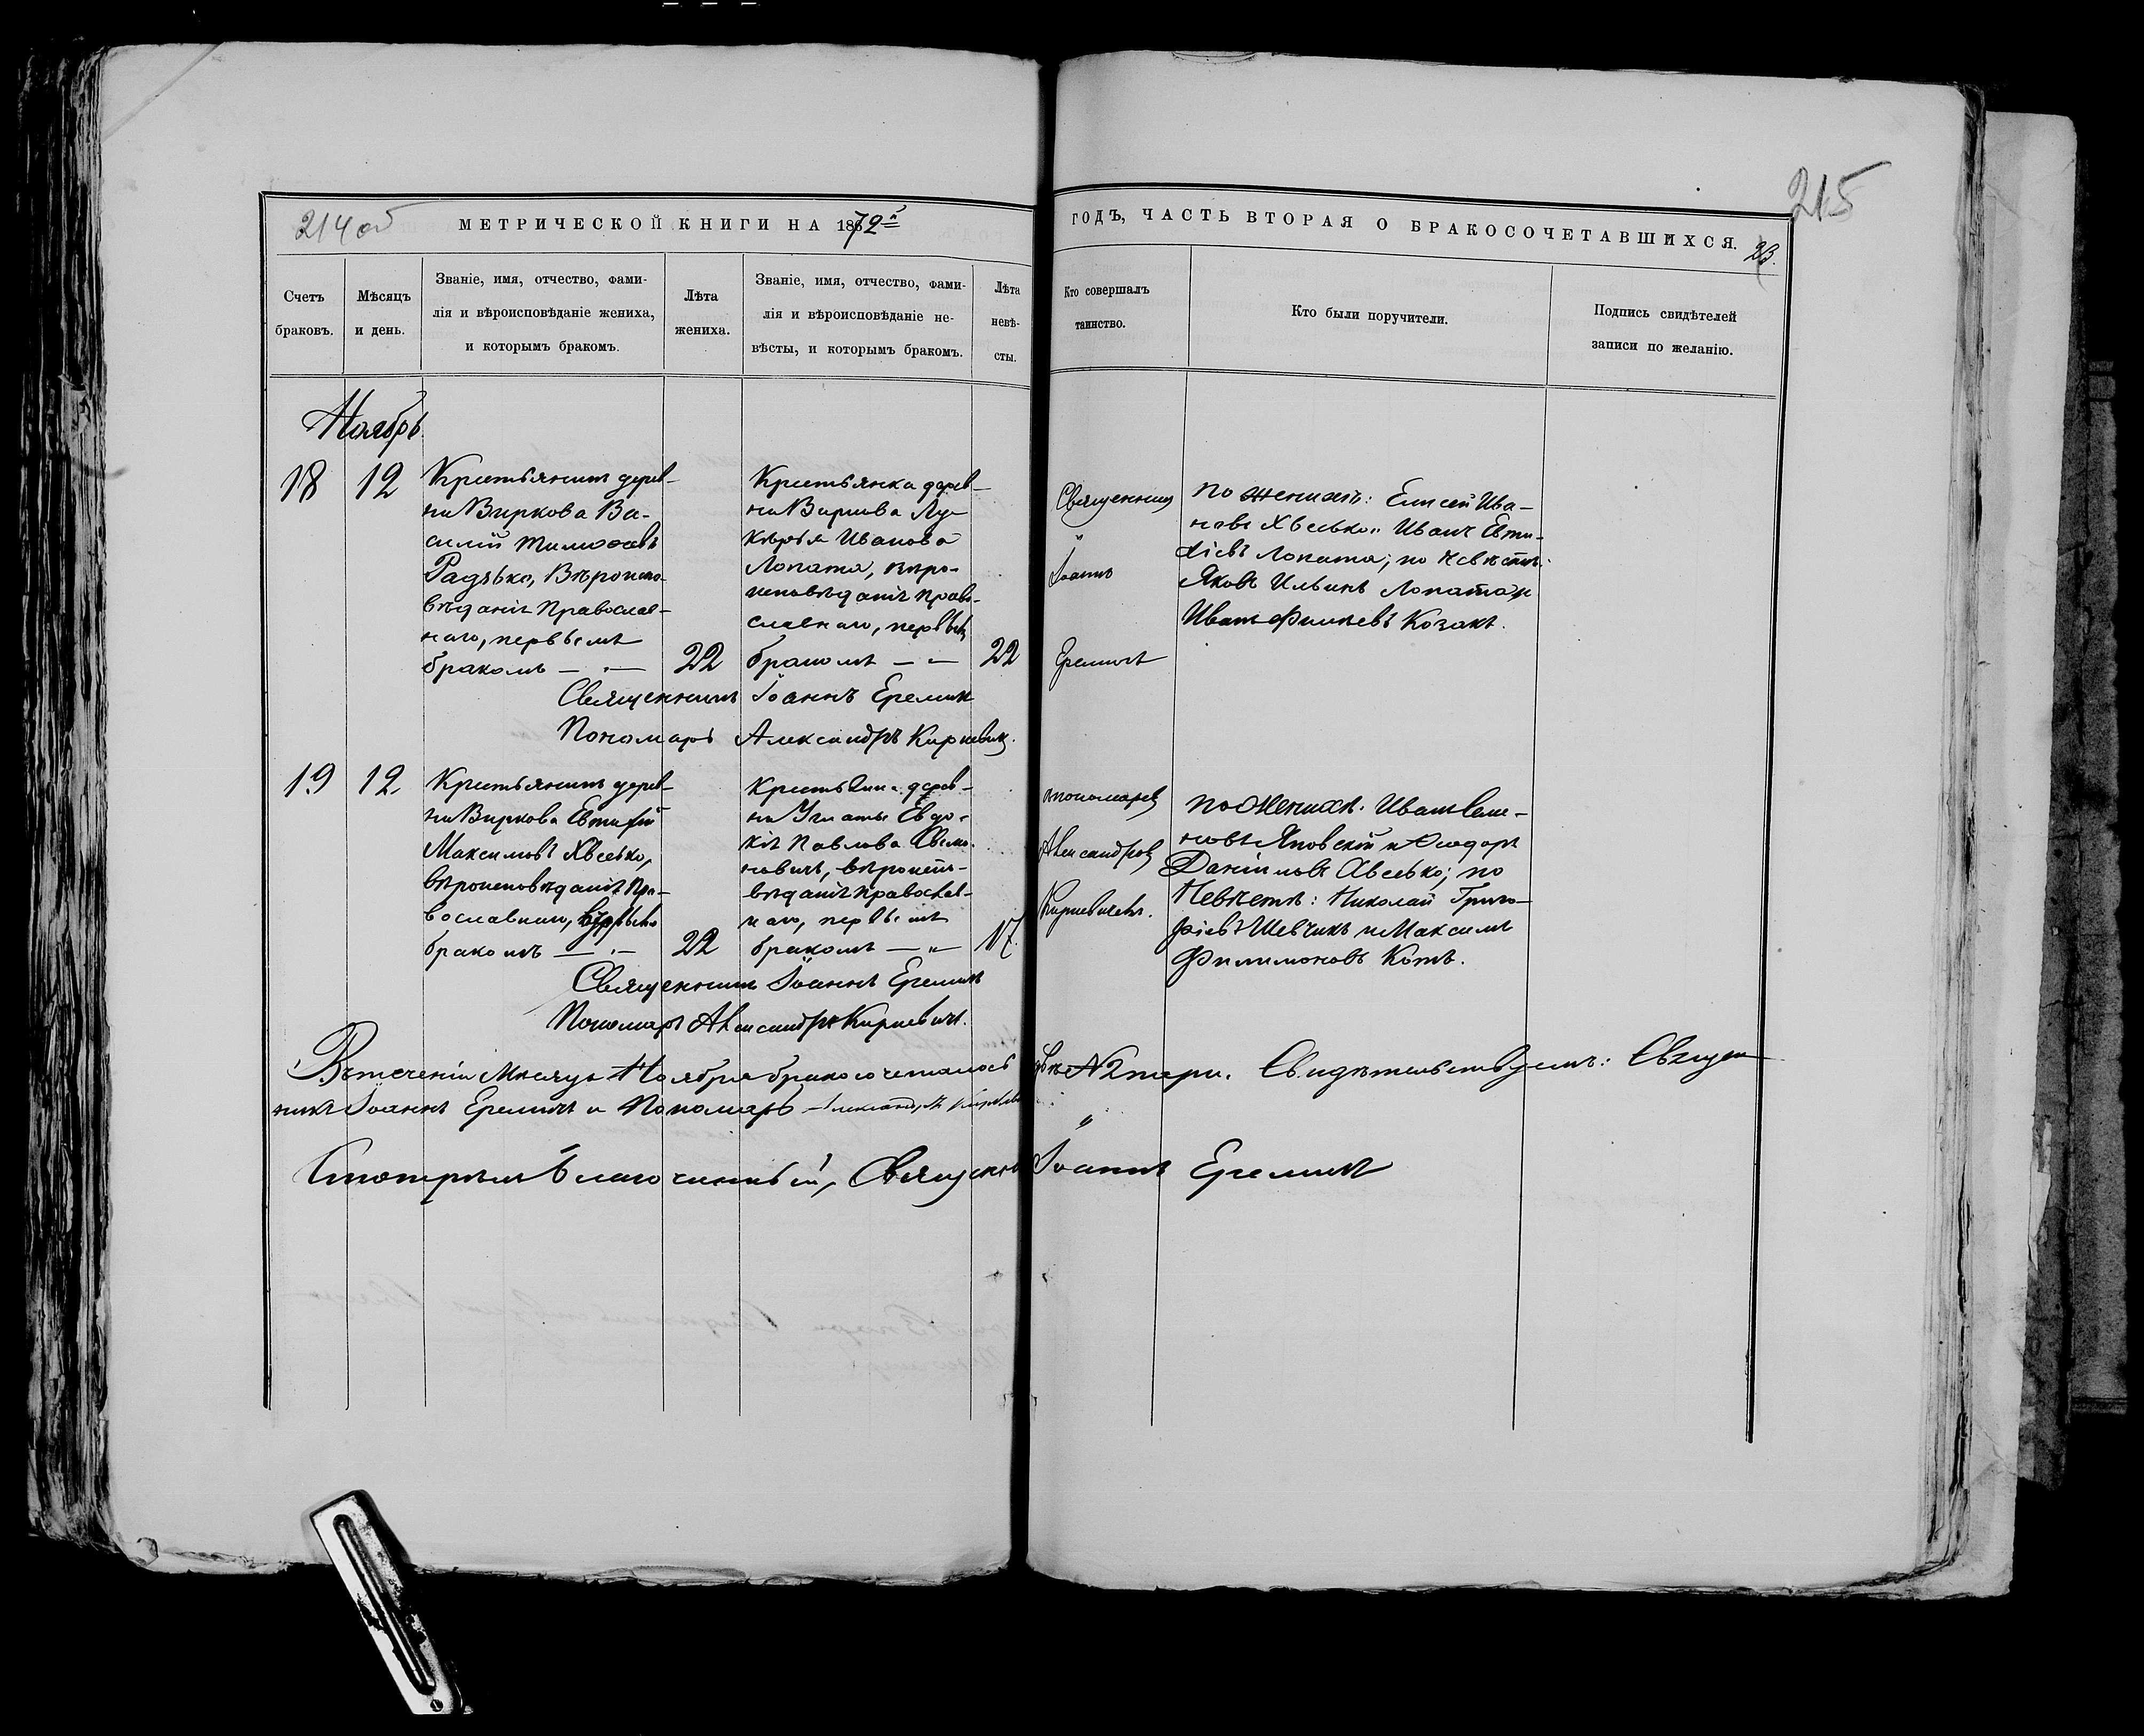 214 об
МЕТРИЧЕСКОЙ КНИГИ НА 1872й
ГОДЪ, ЧАСТЬ ВТОРАЯ О БРАКОСОЧЕТАВШИХСЯ.
215
23.
Счетъ
браковъ.
Мѣсяцъ
и день.
Званіе, имя, отчество, фами-
лія и вѣроисповѣданіе жениха,
и которымъ бракомъ.
Лѣта
жениха.
Званіе, имя, отчество, фами-
лія и вѣроисповѣданіе не-
вѣсты, и которымъ бракомъ.
Лѣта
невѣ-
сты.
Кто совершалъ
таинство.
Кто были поручители.
Подпись свидѣтелей
записи по желанію.
Ноябрь
18
12
Крестьянинъ дерев-
ни Виркова Ва-
силій Тимоѳеевъ
Радько, Вѣроиспо-
вѣданія Православ-
наго, первымъ
бракомъ — „ —
22
Крестьянка дерев-
ни Виркова Лу-
керья Иванова
Лопата, вѣро-
исповѣданія Право-
славнаго, первымъ
бракомъ — „ —
22
Священникъ
Іоаннъ
Еремичъ
по женихѣ: Елисей Ива-
новъ Хвесько и Иванъ Евти-
хіевъ Лопата; по невѣстѣ:
Яковъ Ильинъ Лопата и
Иванъ Козакъ.
Священникъ Іоаннъ Еремичъ
Пономарь Александръ Кирневичъ.
19
12
Крестьянинъ дерев-
ни Виркова Евтихій
Максимовъ Хвесько,
вѣроисповѣданія Пра-
вославнаго, первымъ
бракомъ — „ —
22
Крестьянка дерев-
ни Евдо-
кія Павлова
вѣроиспо-
вѣданія Православ-
наго, первымъ
бракомъ — „ —
17.
пономаремъ
Александромъ
Кирневичемъ.
по женихѣ: Иванъ Семе-
новъ Яновскій и Ѳеодоръ
Даніиловъ Хвесько; по
Невѣстѣ: Николай Григо-
ріевъ Шевчикъ и Максимъ
Филимоновъ Котъ.
Священникъ Іоаннъ Еремичъ
Пономарь Александръ Кирневичъ.
Въ теченіи Мѣсяца Ноября бракосочеталось двѣ № 2 пары. Свидѣтельствуемъ: Священ-
никъ Іоаннъ Еремичъ и Пономарь Александръ Кирневичъ
Смотрѣлъ Благочинный, Священникъ Іоаннъ Еремичъ